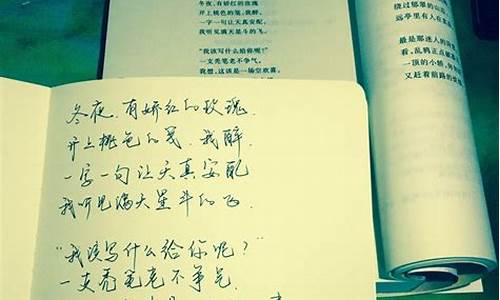 冬夜，有娇红的玫瑰
开上桃色的笺，我醉，
一字一句让天真安配，
我听见满天星斗的飞。
“我该写什么给你呢？”
一支秃笔老不争气。
我想，这该是一场空欢喜。
绕过郁翠的山
里有人在
最是那迷人的
看，乱鸦正点破
一顶的小轿，
又赶着前路的
冬夜，有娇红的玫瑰
开上桃色的笺，我醉，
一字一句让天真安配
我听见满天星斗的飞。
“我该写什么给你呢？”
一支秃笔老不争气。